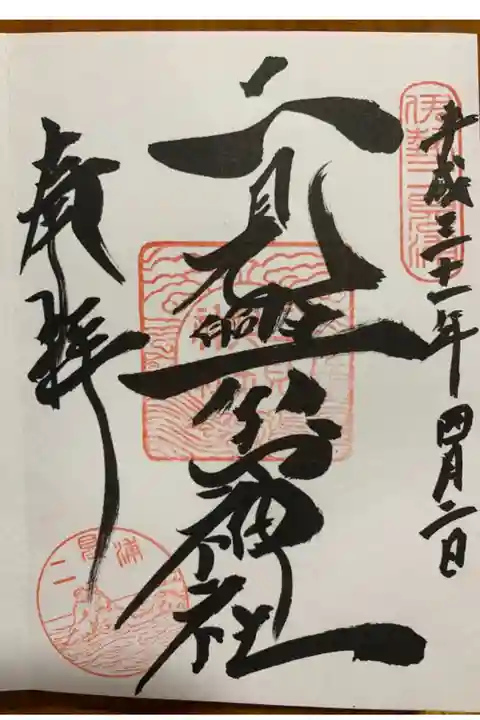 伊勢二見浦
平成三十一年四月二日
二見興玉神社
奉拝
二見浦